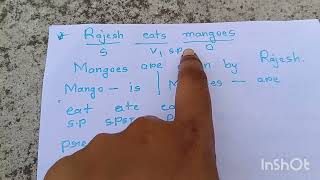 * Rajesh eats mangoes
S V₁ s.p O
Mangoes are by Rajesh.
Mango - is | - are
eat ate
s.p s.ps
InShOt